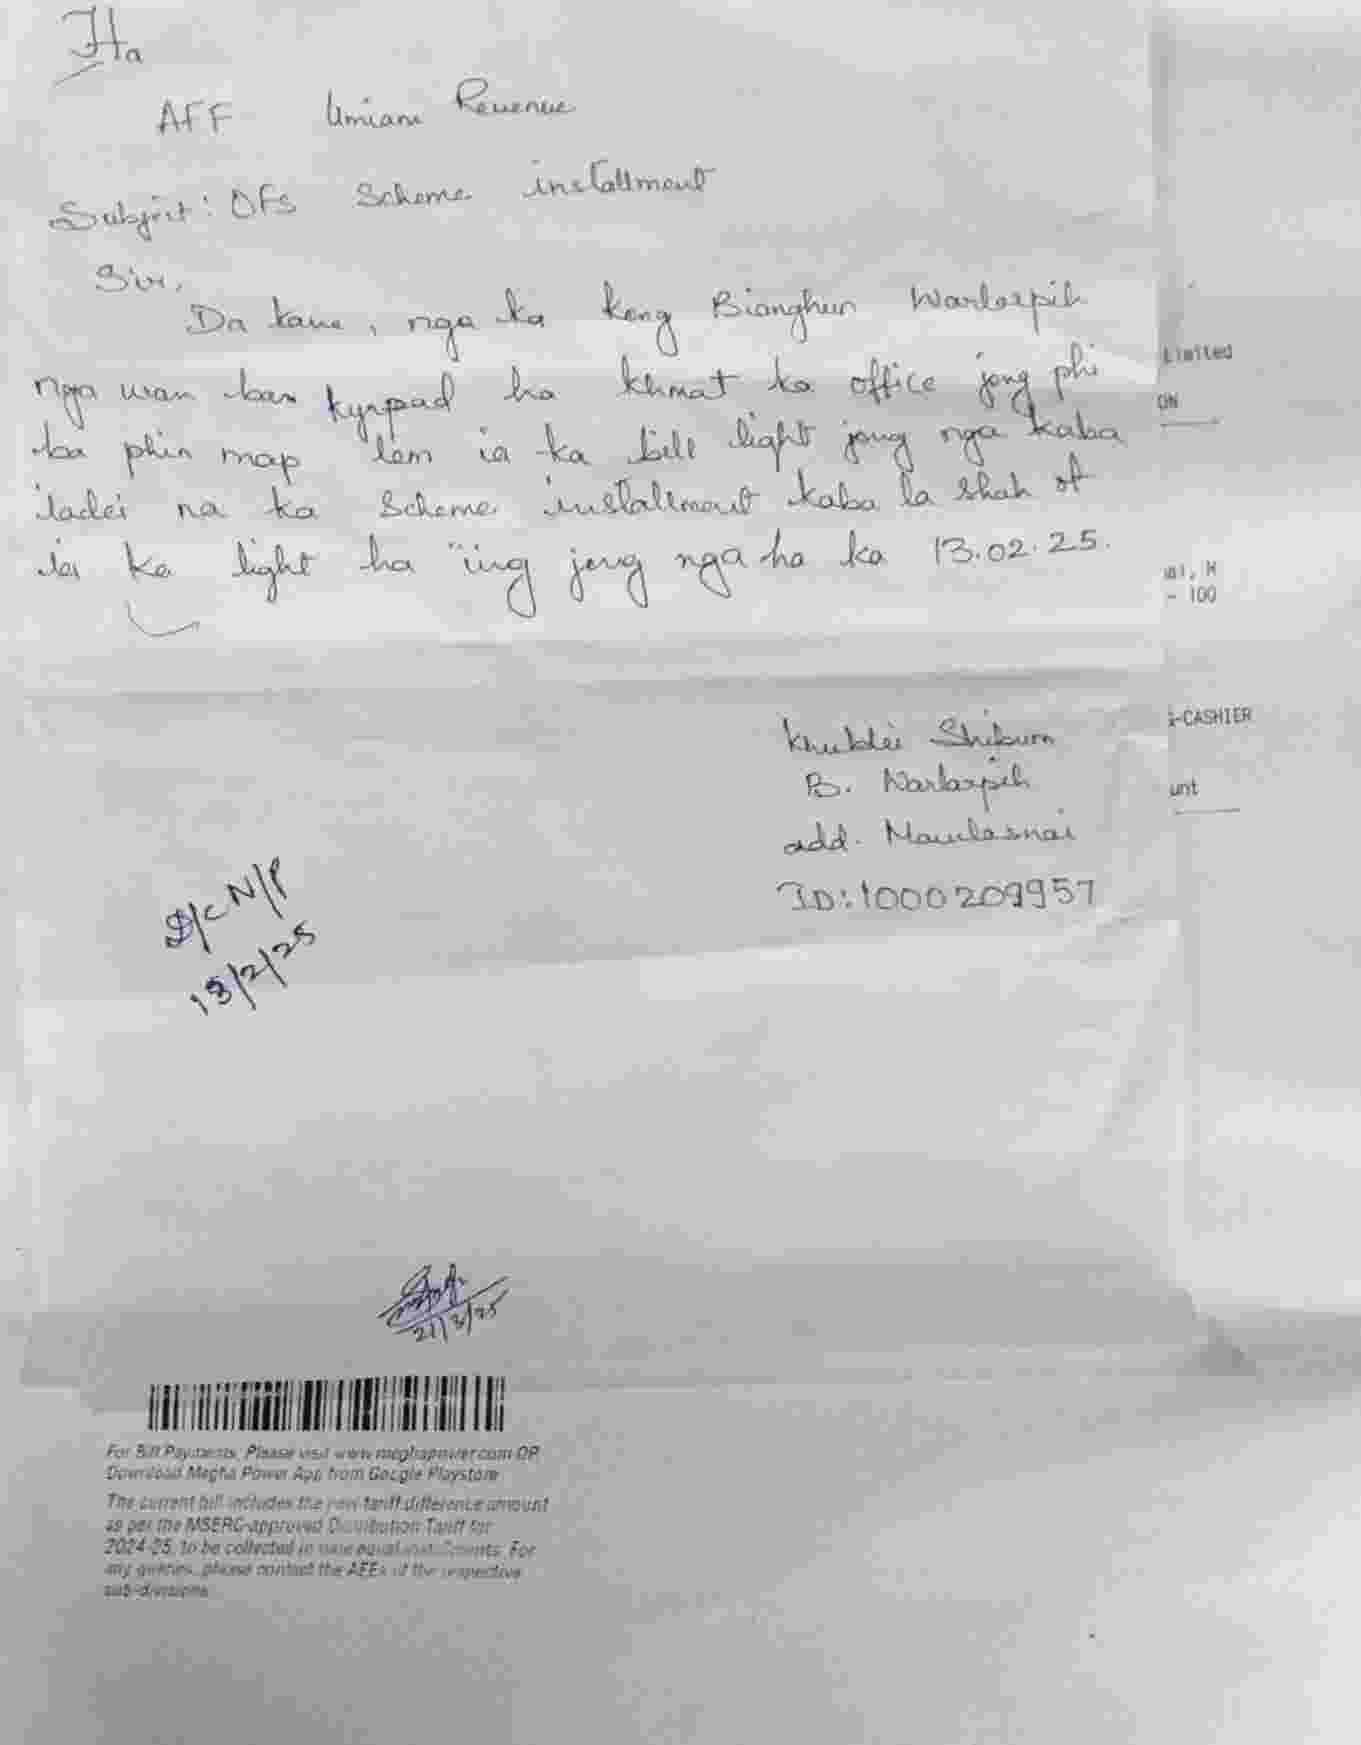 Ha
AFF Umiam Revenue
Subject: OFS Scheme installment
Sir,
Da kane, nga ka kong Bianghun Warlarpih
nga wan ban kyrpad ha khmat ka office jong phi
ba phin map lem ia ka bill light jong nga kaba
iadei na ka Scheme installment kaba la shah ot
ia ka light ha ïing jong nga ha ka 13.02.25.
Limited
ON
al, H
- 100
G-CASHIER
unt
Khublei Shibun
B. Warlarpih
add. Mawlasnai
ID:1000209957
D/C N/P
13/2/25
21/3/25
For Bill Payments, Please visit www.meghapower.com OR
Download Megha Power App from Google Playstore
The current bill includes the new tariff difference amount
as per the MSERC-approved Distribution Tariff for
2024-25, to be collected in nine equal installments. For
any queries, please contact the AEEs of the respective
sub-divisions.